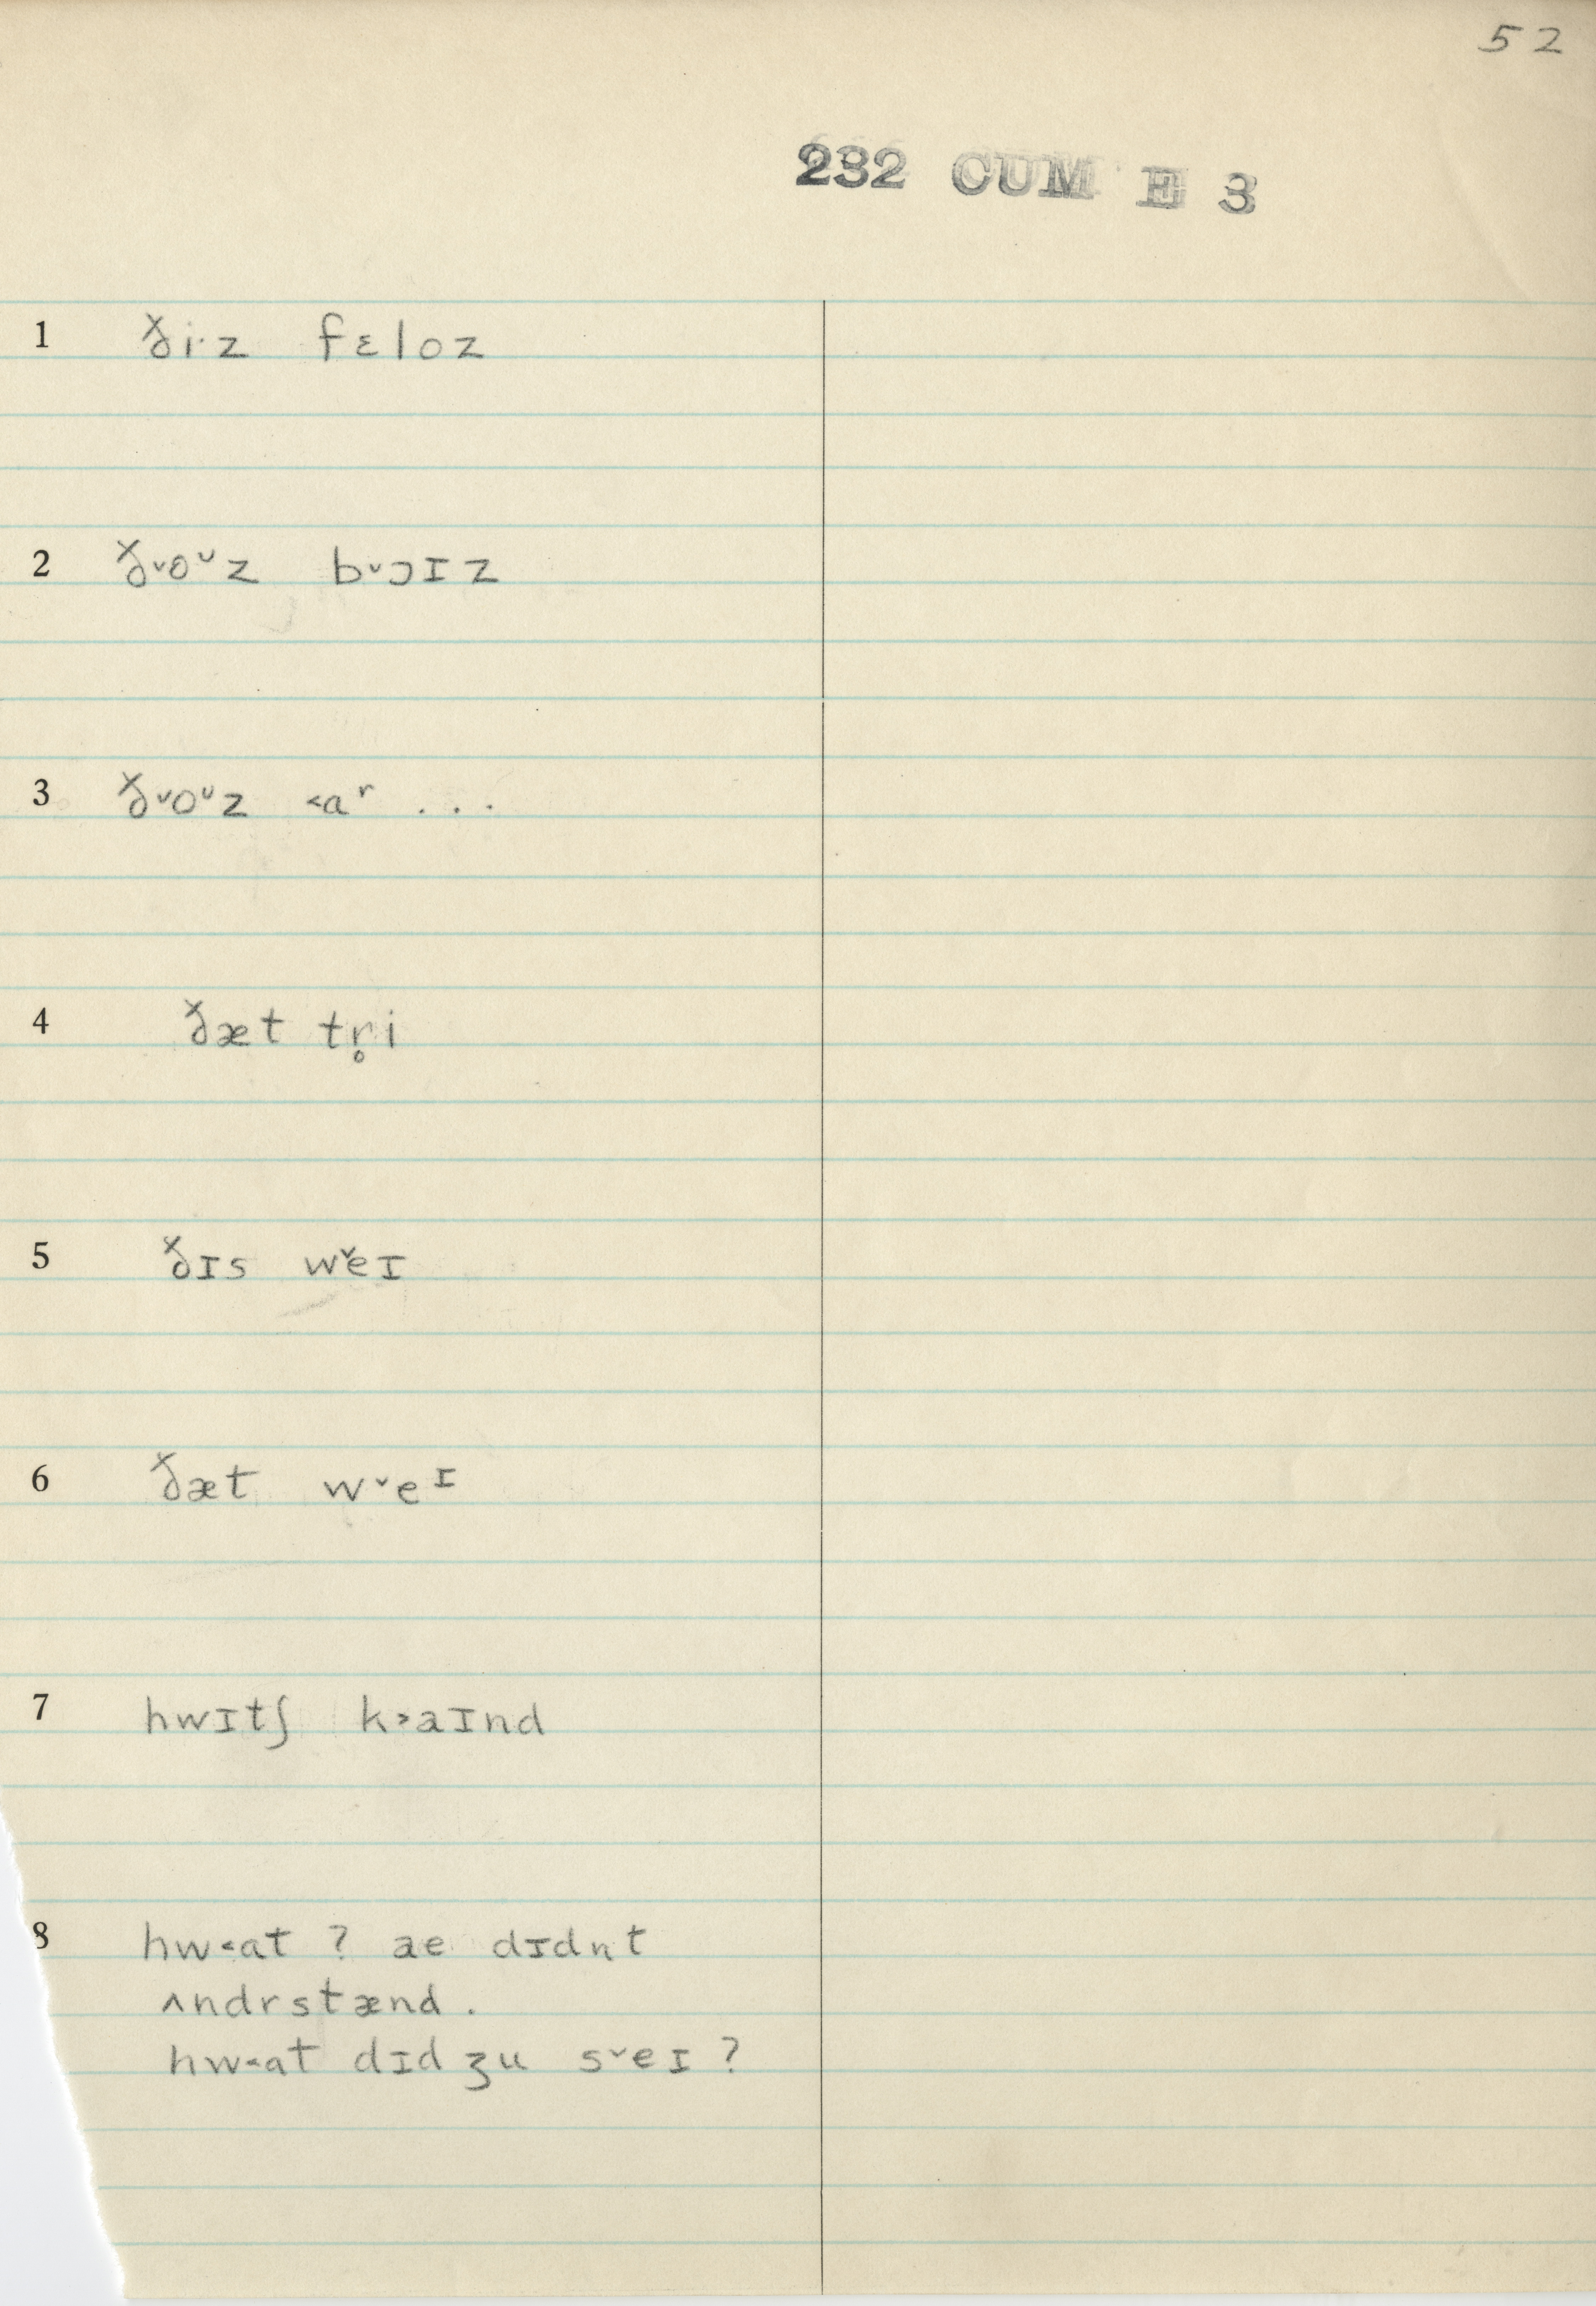 52
232 CUM E 3
1 ði·z fɛloz
2 ð˅o ᷪz b˅ɔɪz
3 ð˅oᶸz ˂aʳ ...
4 ðæt tr̥i
5 ðɪs w˅eɪ
6 ðæt w˅eᶦ
7 hwɪtʃ k˃aɪnd
8 hw˂at ? ae dɪdnt
ʌndrstænd .
hw˂at dɪdʒu s˅eɪ ?